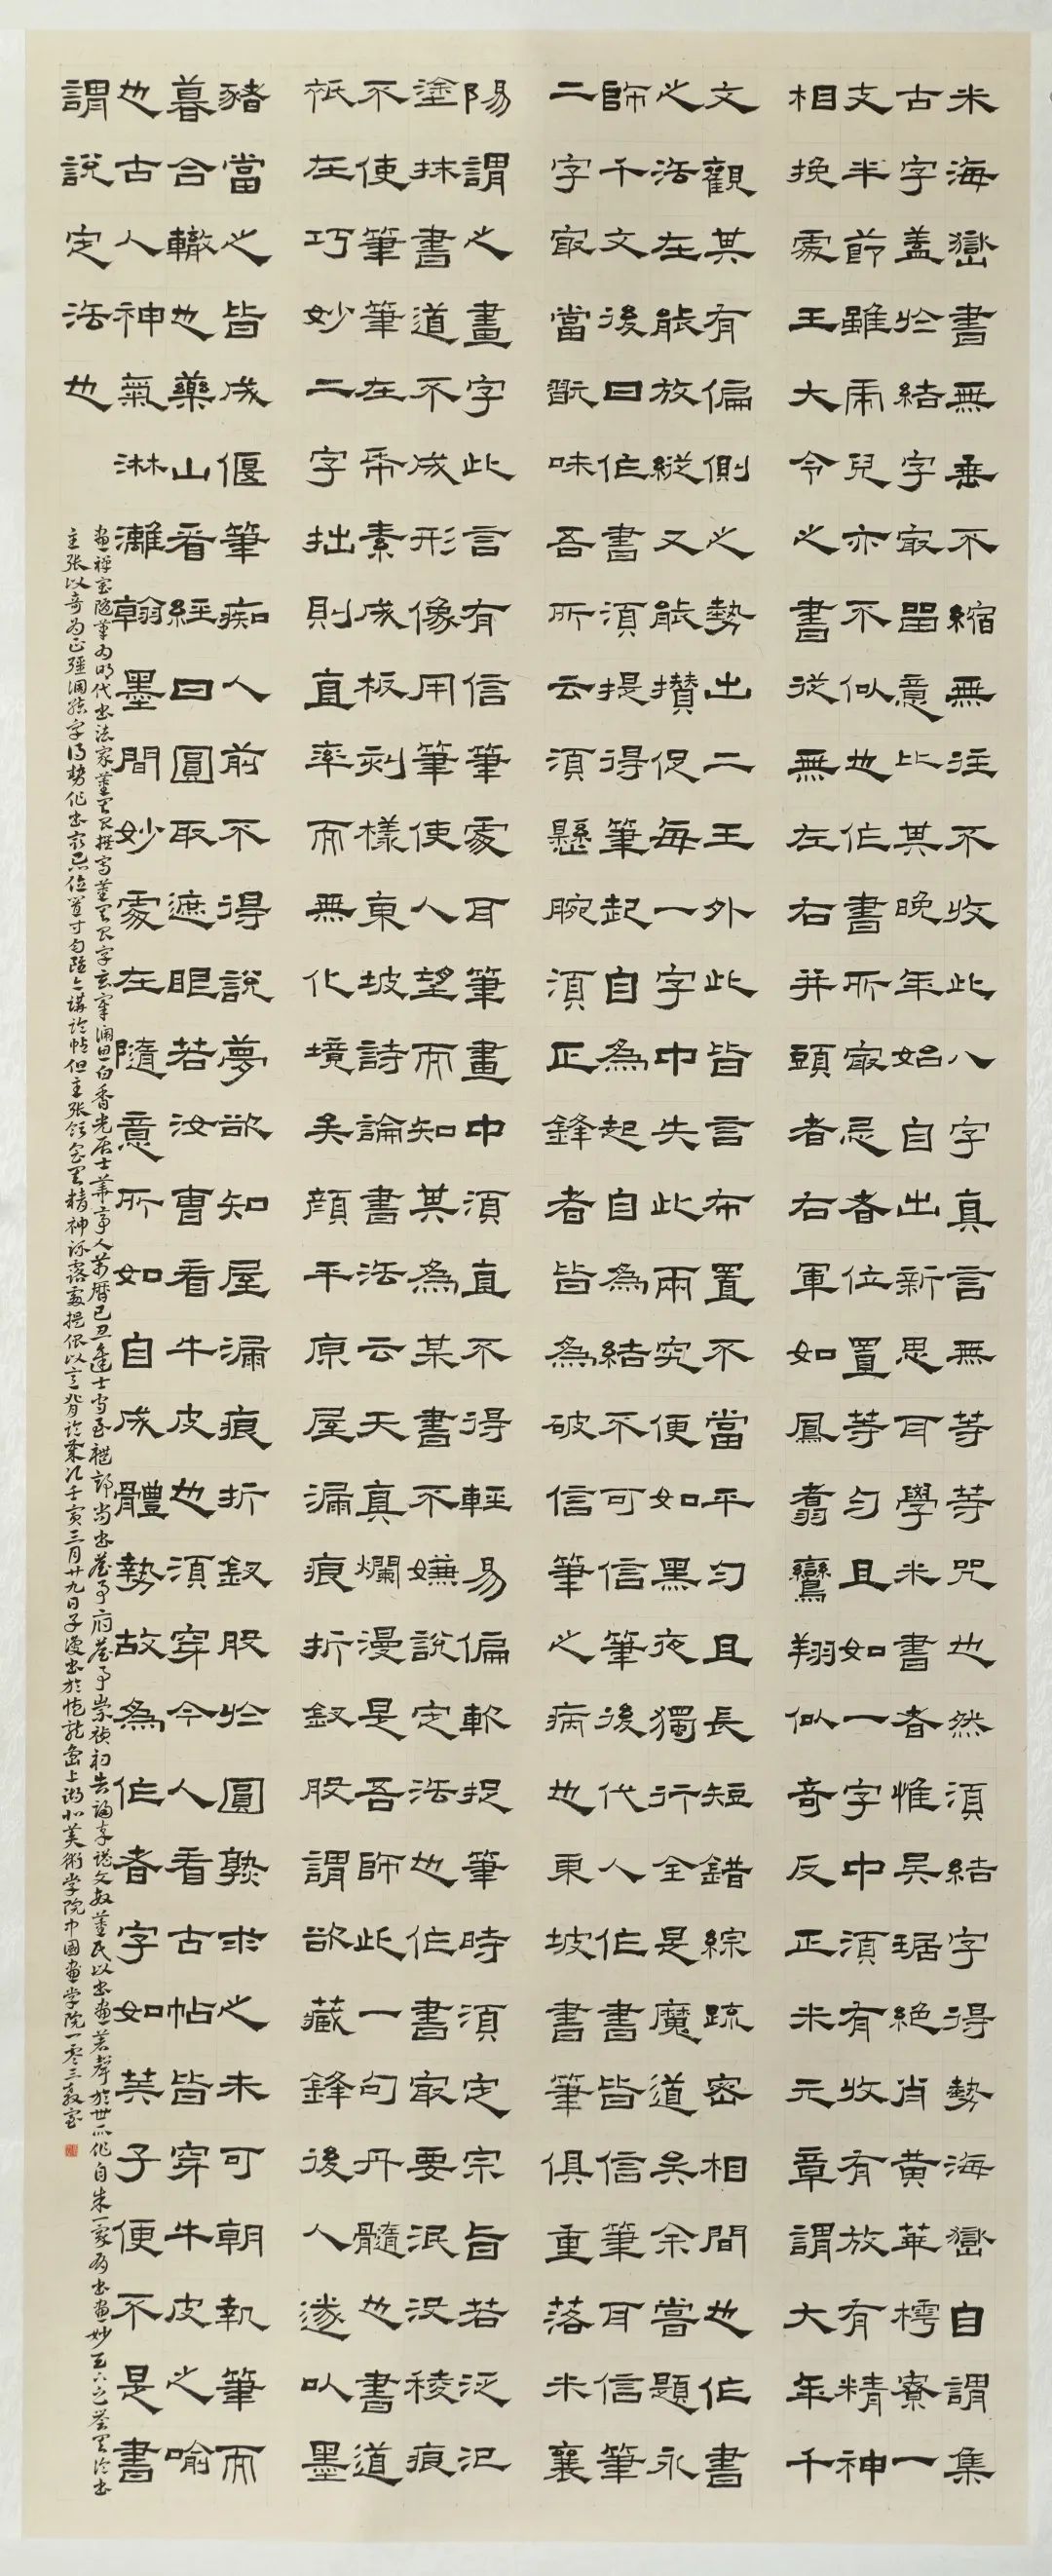 米海嶽書無垂不縮無往不收此八字真言無等等咒也然須結字得勢海嶽自謂集
古字蓋於結字最留意比其晚年始自出新思耳學米書者惟吳琚絕肖黃華樗寮一
支半節雖虎兒亦不似也作書所最忌者位置等勻且如一字中須有收有放有精神
相挽處王大令之書從無左右并頭者右軍如鳳翥鸞翔似奇反正米元章謂大年千
文觀其有偏側之勢出二王外此皆言布置不當平勻且長短錯綜疏密相間也作書
之法在能放縱又能攢促每一字中失此兩究便如黑夜獨行全是魔道矣余嘗題永
師千文後曰作書須提得筆起自為起自為結不可信筆後代人作書皆信筆耳信筆
二字最當翫味吾所云須懸腕須正鋒者皆為破信筆之病也東坡書筆俱重落米襄
陽謂之畫字此言有信筆處耳筆畫中須直不得輕易偏軟捉筆時須定宗旨若泛汜
塗抹書道不成形像用筆使人望而知其為某書不嫌說定法也作書最要泯沒稜痕
不使筆筆在帋素成板刻樣東坡詩論書法云天真爛漫是吾師此一句丹髓也書道
衹在巧妙二字拙則直率而無化境矣顏平原屋漏痕折釵股謂欲藏鋒後人遂以墨
豬當之皆成偃筆痴人前不得說夢欲知屋漏痕折釵股於圓熟求之未可朝執筆而
暮合轍也藥山看經曰圖取遮眼若汝曹看牛皮也須穿今人看古帖皆穿牛皮之喻
也古人神氣淋漓翰墨間妙處在隨意所如自成體勢故為作者字如筭子便不是書
謂說定法也
畫禪室隨筆為明代書法家董其昌撰寫董其昌字玄宰號思白香光居士華亭人萬曆己丑進士官至禮部尚書詹事府詹事崇禎初告諭卒謚文敏董氏以書畫著聲於世所作自成一家為書畫妙其論書
主張以奇為正強調結字得勢作書最忌位置等勻臨學講論帖但主張領會其精神流露處提倡以意背臨壬寅三月廿九日子漫書於湖北美術學院中國畫學院一零三教室